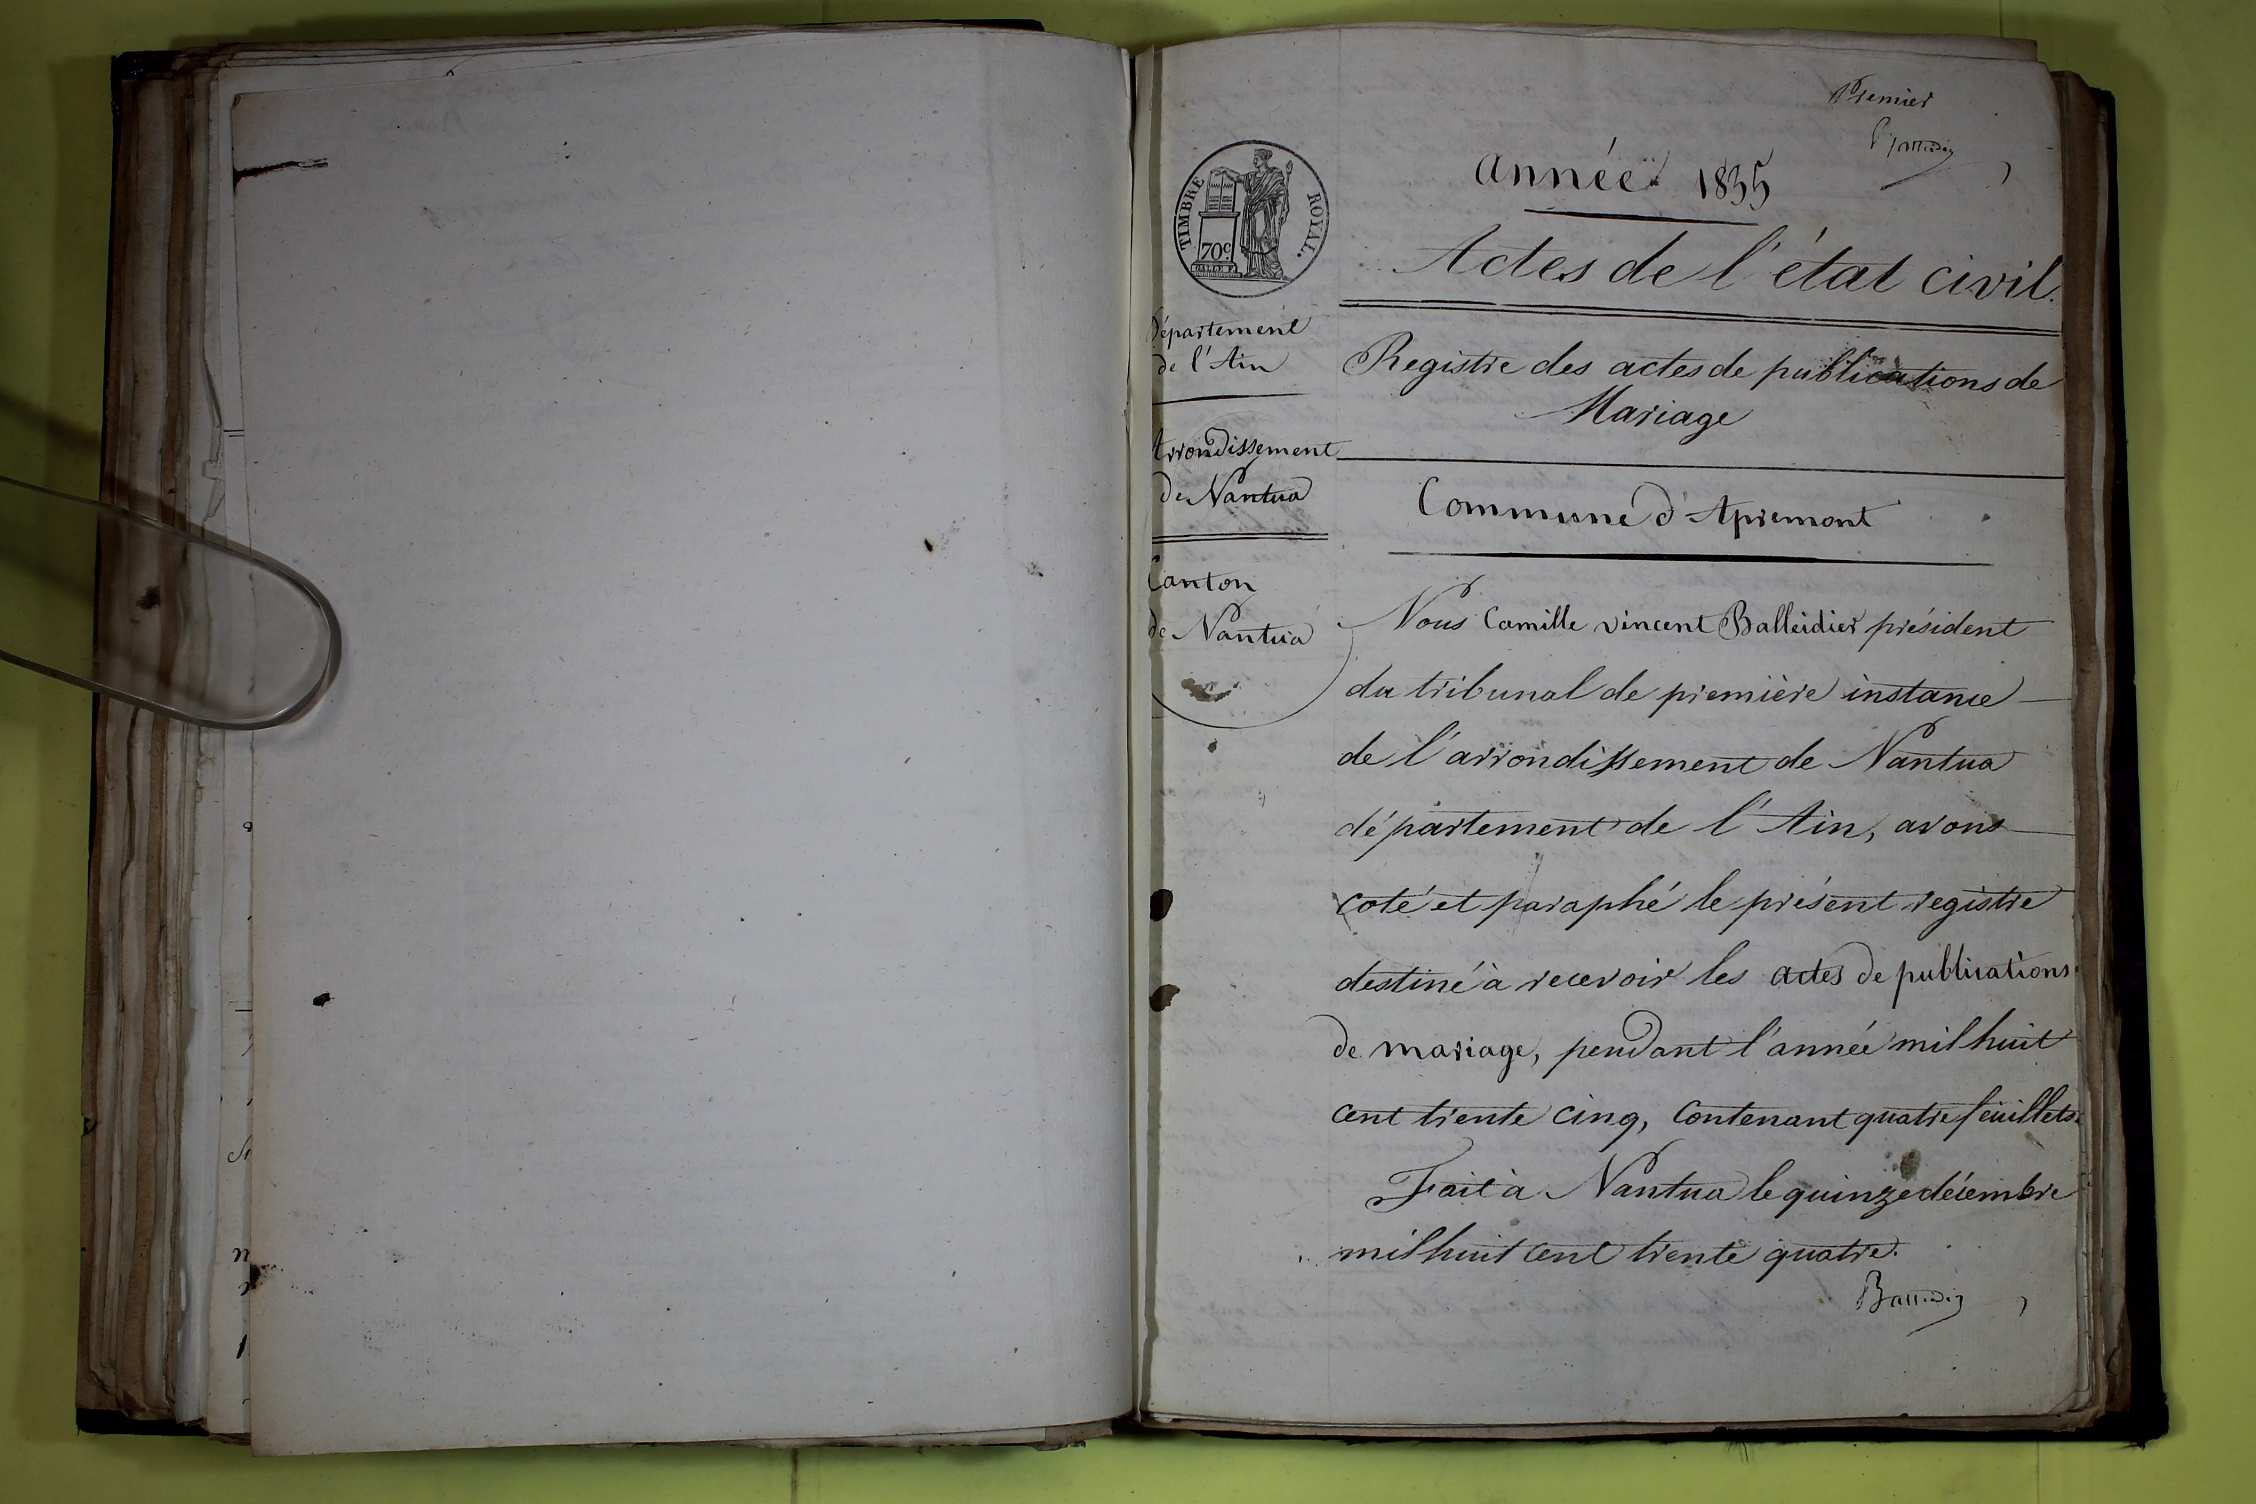 Premier
année 1835
TIMBRE ROYAL.
70c
Actes de l'état civil.
Département
de l'Ain
Registre des actes de publications de
Mariage
Arrondissement
de Nantua
Commune d'Apremont
Canton
de Nantua
Nous Camille vincent Balleidier président
du tribunal de première instance
de l'arrondissement de Nantua
département de l'Ain, avons
coté et paraphé le présent registre
destiné à recevoir les actes de publications
de mariage, pendant l'année mil huit
cent trente cinq, contenant quatre feuillets.
Fait à Nantua le quinze décembre
mil huit cent trente quatre.